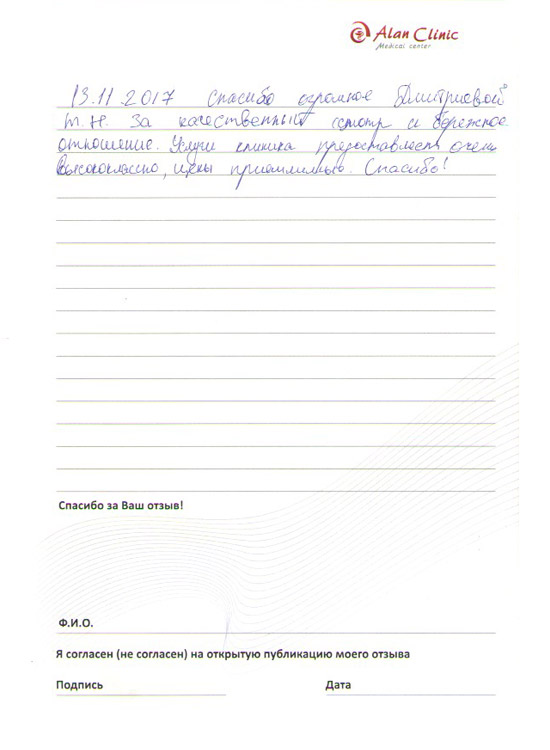 Alan Clinic
Medical center
13.11.2017 Спасибо огромное Дмитриевой
Т.Н. За качественный осмотр и бережное
отношение. Услуги клиника предоставляет очень
высококлассно, цены приемлимые. Спасибо!
Спасибо за Ваш отзыв!
Ф.И.О.
Я согласен (не согласен) на открытую публикацию моего отзыва
Подпись Дата